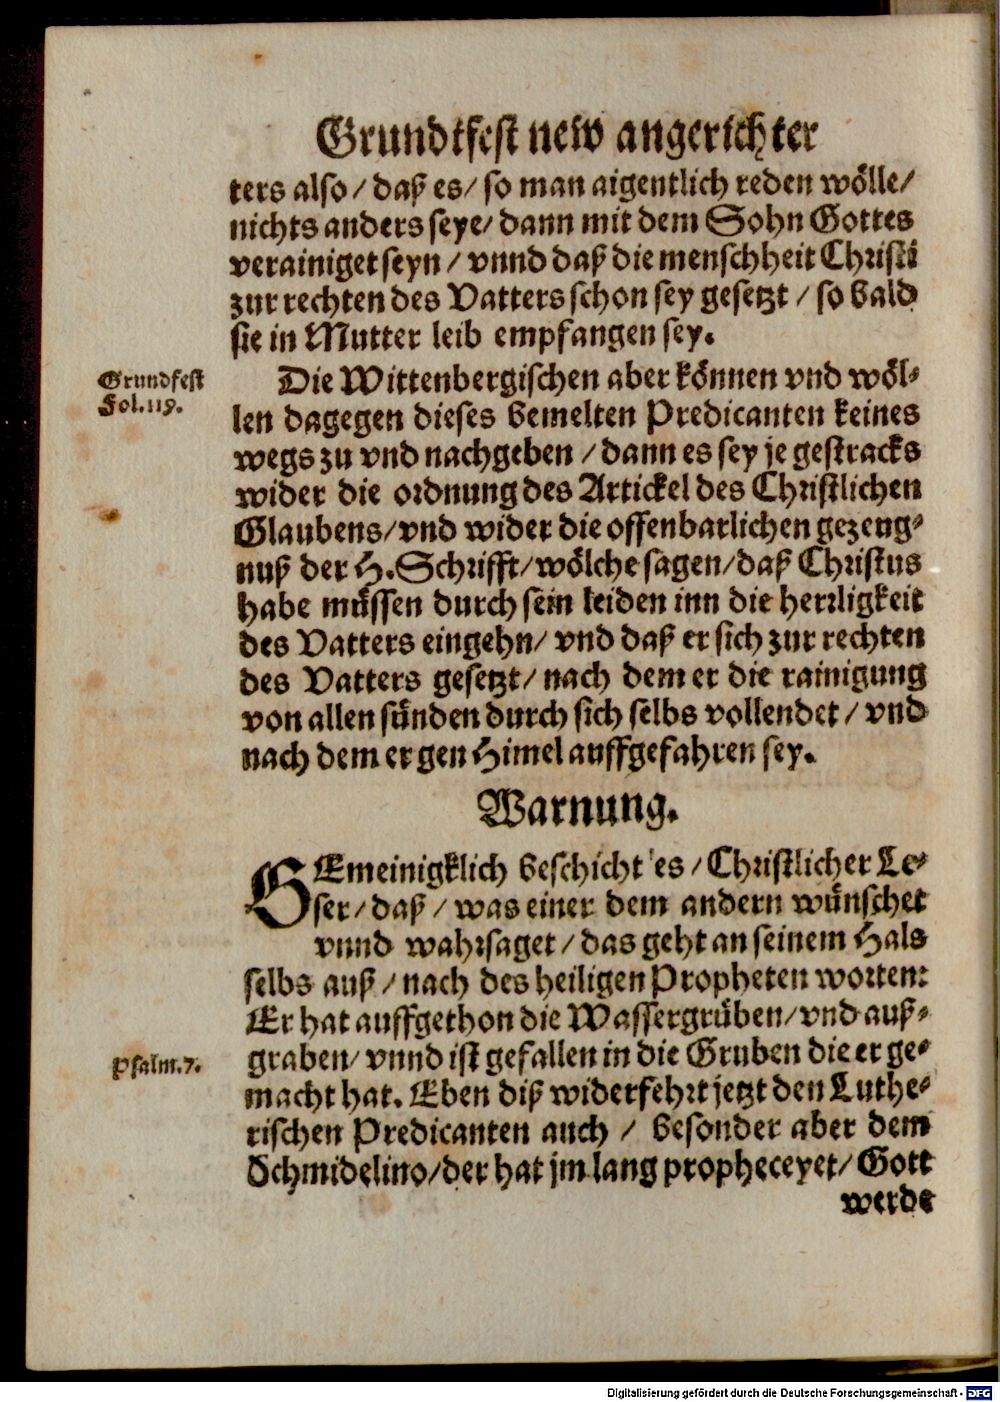 Grundtfest new angerichter
ters also / daß es / so man aigentlich reden wölle /
nichts anders seye / dann mit dem Sohn Gottes
verainiget seyn / vnnd daß die menschheit Christi
zur rechten des Vatters schon sey gesetzt / so bald
sie in Mutter leib empfangen sey.
Grundfest
Fol. 119.
Die Wittenbergischen aber können vnd wöl-
len dagegen dieses bemelten Predicanten keines
wegs zu vnd nachgeben / dann es sey je gestracks
wider die ordnung des Artickel des Christlichen
Glaubens / vnd wider die offenbarlichen gezeug-
nuß der H. Schrifft / wölche sagen / daß Christus
habe müssen durch sein leiden inn die herrligkeit
des Vatters eingehn / vnd daß er sich zur rechten
des Vatters gesetzt / nach dem er die rainigung
von allen sünden durch sich selbs vollendet / vnd
nach dem er gen Himel auffgefahren sey.
Warnung.
GEmeinigklich beschicht es / Christlicher Le-
ser / daß / was einer dem andern wünschet
vnnd wahrsaget / das geht an seinem Hals
selbs auß / nach des heiligen Propheten worten:
Er hat auffgethon die Wassergrüben / vnd auß-
Psalm. 7.
graben / vnnd ist gefallen in die Gruben die er ge-
macht hat. Eben diß widerfehrt jetzt den Luthe-
rischen Predicanten auch / besonder aber dem
Schmidelino / der hat jm lang propheceyet / Gott
werde
Digitalisierung gefördert durch die Deutsche Forschungsgemeinschaft - DFG